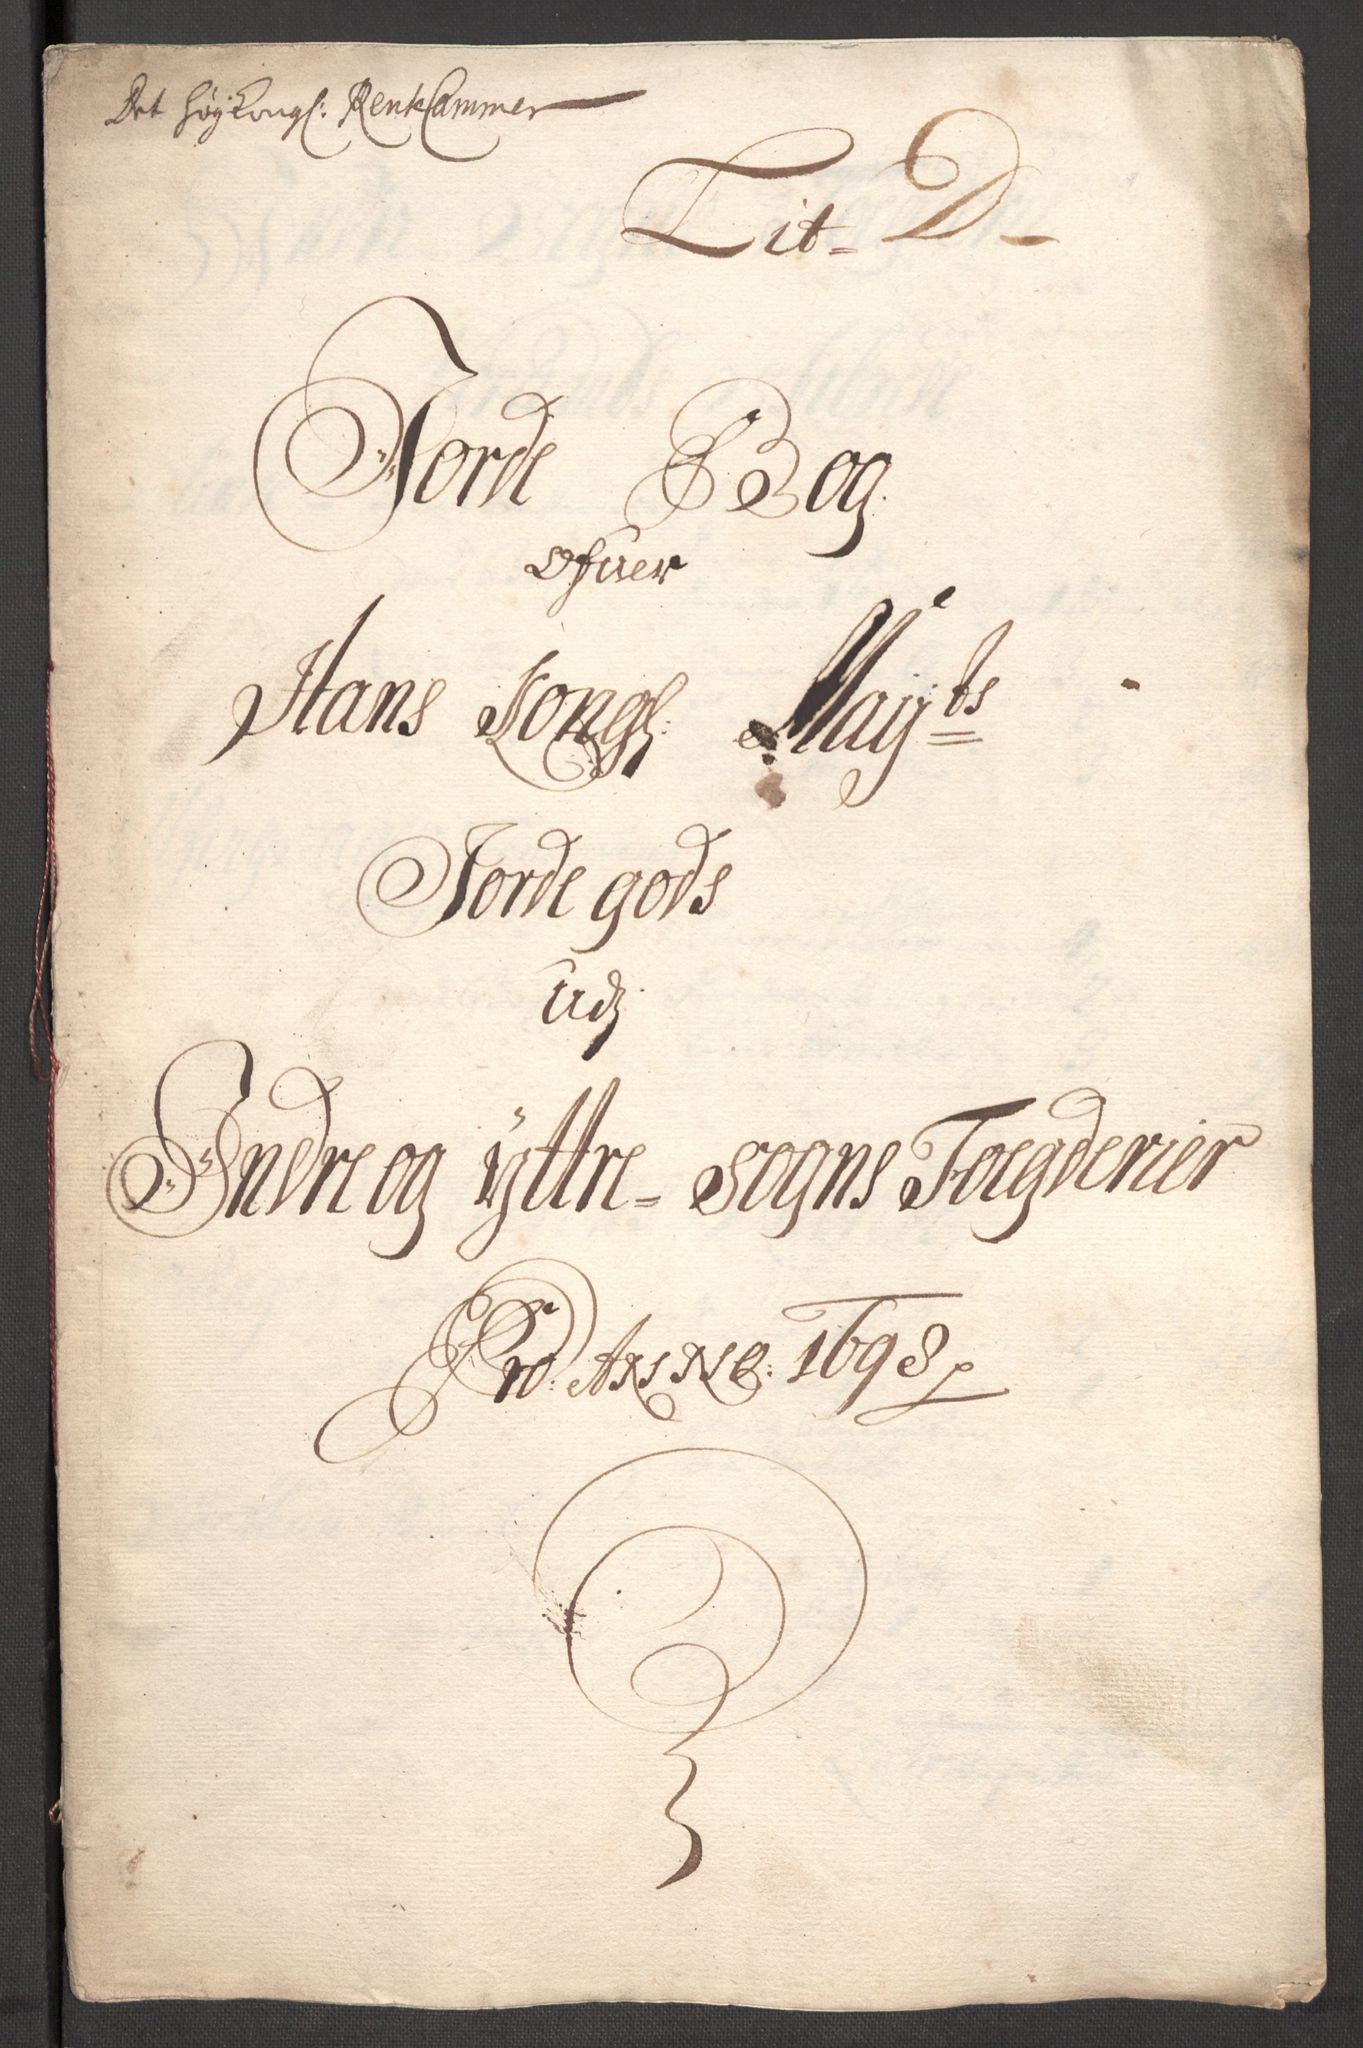 Det høy Kongl: RentCammer
Lit_ D_
Jorde Bog
ofuer
Hans Kongl: Mayts
Jorde gods
Udj
Indre og ÿttre= sogns Foegderier
Pro: ANNO: 1698